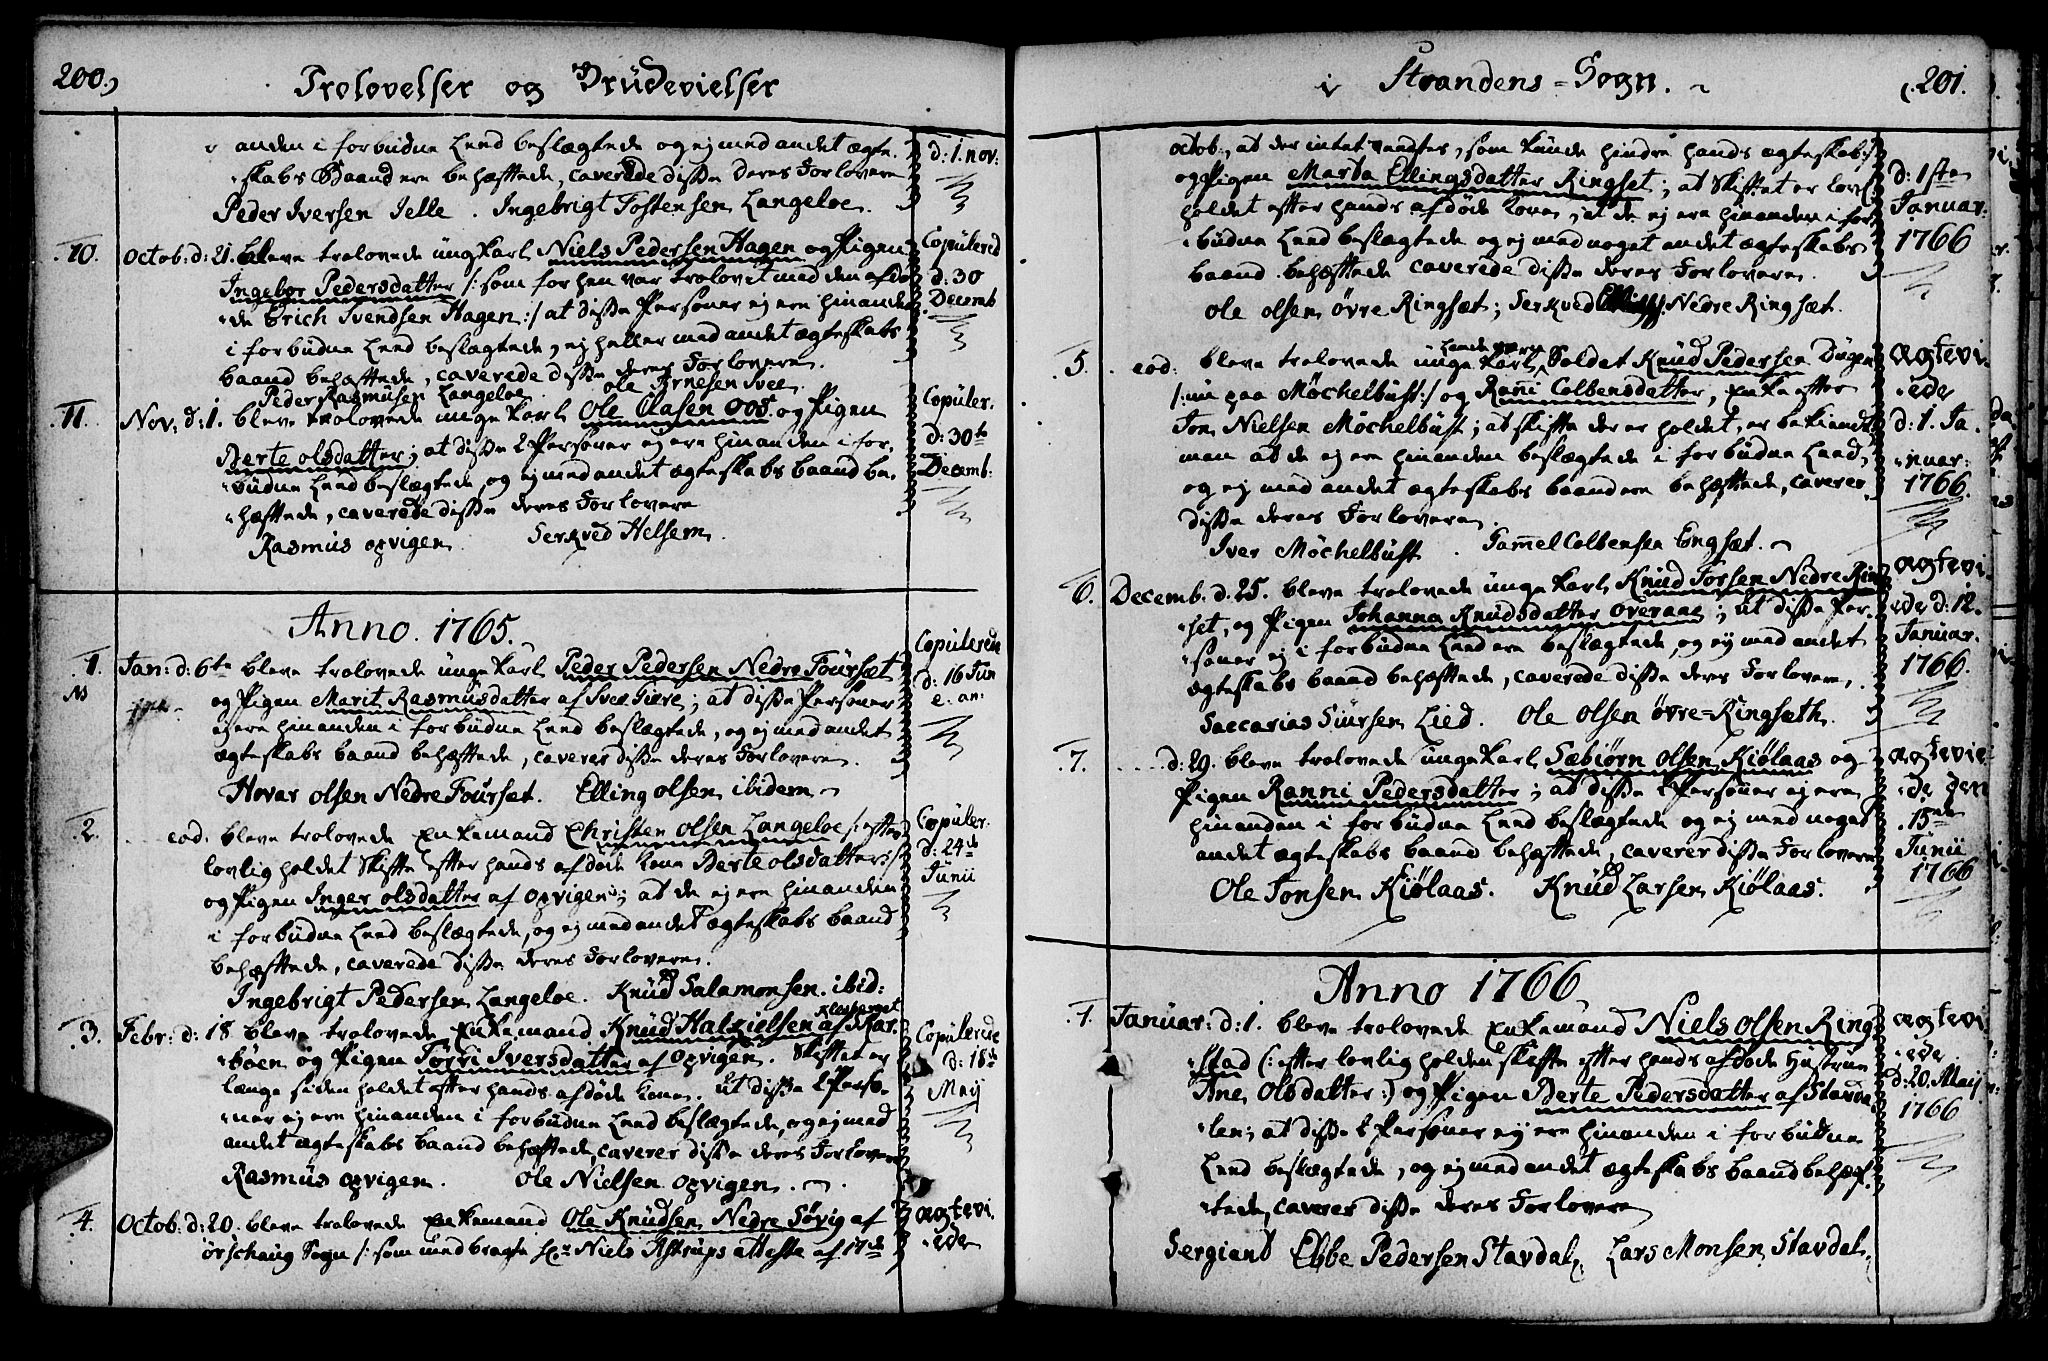 200.)
Trolovelser og Brüdevielser
anden i forbudne Leed beslægtede og ej med andet ægte-
skabs Baand ere behæftede, caverede disse deres Forlovere
Peder Iversen Ielle. Ingebrigt Tostensen Langeloe.
d: 1. nov:
10. Octob: d: 21. bleve trolovede ung karl Niels Pedersen Hagen og Pigen
Ingebor Pedersdatter /: som forhen var trolovet med den afdø-
de Erich Svendsen Hagen :/ at disse Personer ej ere hinanden
i forbudne Leed beslægtede, ej heller med andet ægteskabs
baand behæftede, caverede disse deres Forlovere.
Peder Rasmusen Langeloe. Ole Arnesen Svee.
Copulered
d: 30
Decemb
11. Nov: d: 1. bleve trolovede unge karl Ole Olasen Oos og Pigen
Berte olsdatter; at disse 2 Personer ej ere hinanden i for-
budne Leed beslægtede, og ej med andet ægteskabs baand be-
hæftede, caverede disse deres Forlovere
Rasmus opvigen. Serkved Helsem.
Copuler.
d: 30te
Decemb:
Anno. 1765.
1. Jan: d: 6te bleve trolovede unge karl Peder Pedersen Nedre Foürsæt
og Pigen Marit Rasmusdatter af Svee Giere; at disse Personer
ej ere hinanden i forbudne Leed beslægtede, og ej med andet
ægteskabs baand behæftede, caverer disse deres Forlovere.
Hovar olsen Nedre Foürset. Elling olsen ibidem
Copulerede
d: 16 Jun
e: an:
2. eod. bleve trolovede Enkemand Christen olsen Langeloe /: efter
lovlig holdet Skifte efter hands afdøde kone Berte olsdatter :/
og Pigen Inger olsdatter af opvigen; at de ej ere hinanden
i forbudne Leed beslægtede, og ej med andet ægteskabs baand
behæftede, caverede disse deres Forlovere.
Ingebrigt Pedersen Langeloe. Knüd Salamonsen. ibid:
Copuler.
d: 24de
Junii
3. Febr: d: 18 bleve trolovede Enkemand Knüd Halkielsen af Skar-
bøen og Pigen Tørri Iversdatter af opvigen. Skiftet er
længe siden holdet efter hands afdøde kone. at disse 2 Perso-
ner ej ere hinanden i forbudne Leed beslægtede, og ej med
andet ægteskabs baand behæftede, caverer disse deres Forlovere
Rasmus opvigen. Ole Nielsen opvigen.
Copulerede
D: 18de
Maij
4. Octob: d: 20. bleve trolovede Enkemand Ole Knüdsen Nedre Søvig af
ørschaug Sogn /: som medbragte Niels Astrups atteste af 17de
ægtevi-
ede
i Strandens = Sogn.
(201.
octob:, at der intet vandtes, som kunde hindre hands ægteskab :/
og Pigen Marta Ellingsdatter Ringset; at Skiftet er lovl:
holdet efter hands afdøde kone, at de ej ere hinanden i for-
budne Leed beslægtede og ej med noget andet ægteskabs
baand behæftede caverede disse deres Forlovere.
ole olsen øvre Ringsæt; Serkved Nedre Ringsæt.
d: 1ste
Januar:
1766
5. eod: bleve trolovede unge karl, Soldat Knüd Pedersen
/: nu paa Møchelbust :/ og Rañi Colbensdatter, Enke efter
Jon Nielsen Møchelbust; at skifte der er holdet, er bekiendt
man at de ej ere hinanden beslægtede i forbudne Leed,
og ej med andet ægteskabs baand ere behæftede, caverer
disse deres Forlovere.
Iver Møchelbust. Sam̃el Colbensen Engsæt.
ægtevi-
ede
d: 1. Ja-
nuar:
1766.
6. Decemb: d. 25. bleve trolovede unge karl Knüd Torsen Nedre Rin-
set, og Pigen Johanna Knüdsdatter overaae; at disse Per-
soner ej i forbudne Leed ere beslægtede, og ej med andet
ægteskabs baand behæftede, caverede disse deres Forlovere.
Saccarias Siürsen Lied. Ole Olsen øvre=Ringsæth.
ægtevi-
ede d: 12.
Januar.
1766.
7. d: 29. bleve trolovede unge karl Sæbiørn olsen Kiølaas og
Pigen Ranni Pedersdatter; at disse 2 Personer ej ere
hinanden i forbudne Leed beslægtede og ej med noget
andet ægteskabs baand behæftede, caverer disse Forlovere
Ole Jonsen Kiølaas. Knüd Larsen Kiølaas.
ægtevie-
de den
15ne
Junii
1766
Anno 1766
1. Januar: d: 1. bleve trolovede Enkemand Niels olsen Ring-
stad (: efter lovlig holden skifte efter hands afdøde Hustrue
Ane Olsdatter :) og Pigen Berte Pedersdatter af Stavda-
len; at disse 2 Personer ej ere hinanden i forbudne
Leed beslægtede, og ej med andet ægteskabs baand behæf-
tede, caverer disse deres Forlovere
Sergiant Ebbe Pedersen Stavdal, Lars Monsen Stavdal.
ægtevi-
ede
d: 20. Maij
1766